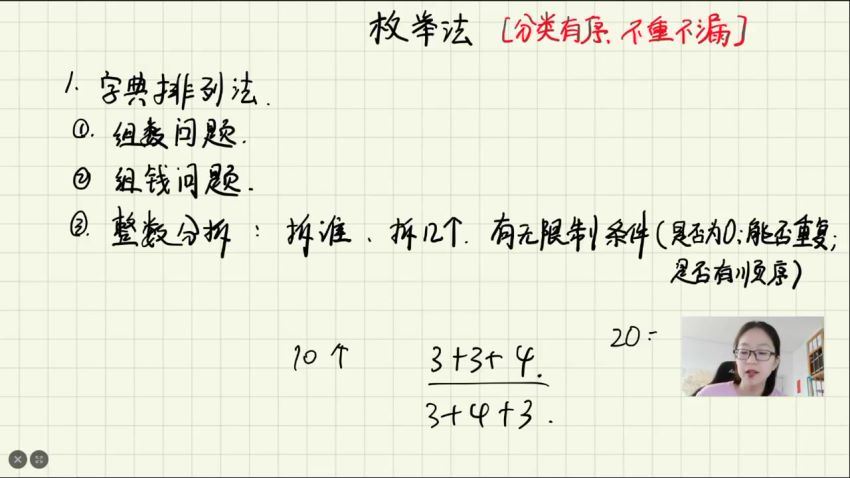 枚举法 [分类有序、不重不漏]
1. 字典排列法.
①. 组数问题.
② 组钱问题.
③. 整数分拆: 拆谁、拆几个. 有无限制条件(是否为0;能否重复;
是否有顺序)
20=
10个 3+3+4.
3+4+3.